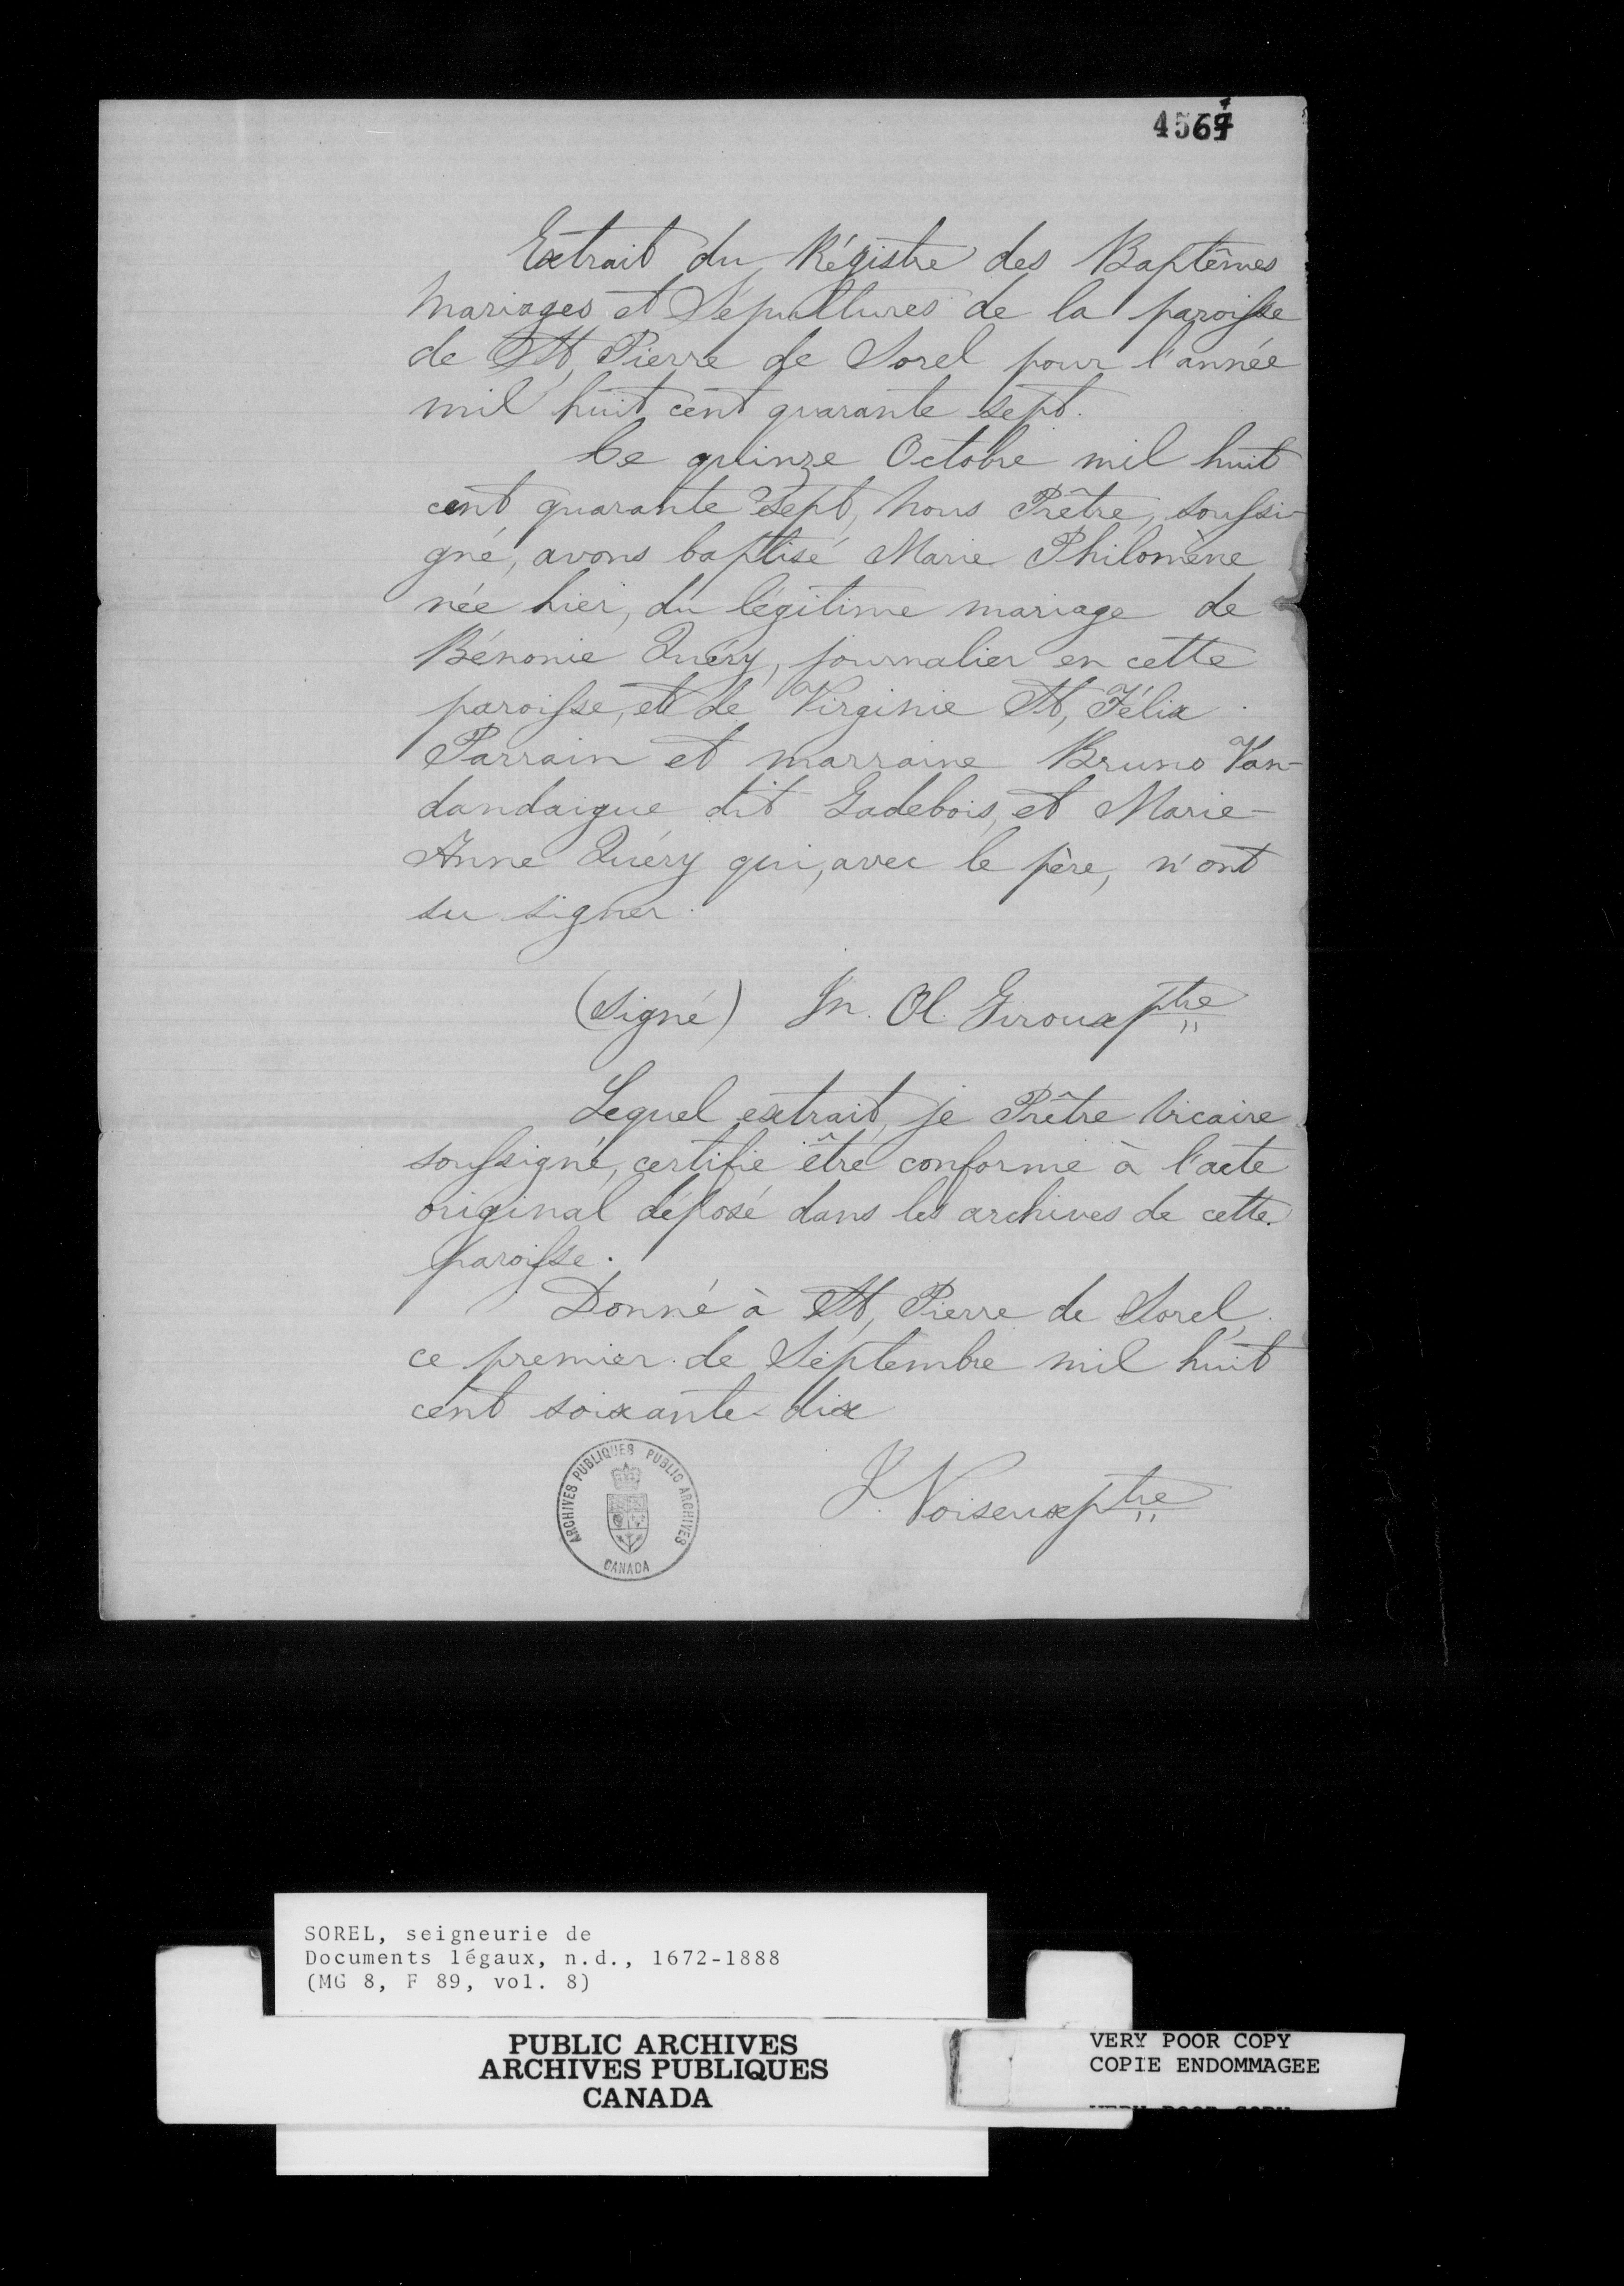 4564
Extrait du Régistre des Baptêmes
Mariages et Sépultures de la paroisse
de St, Pierre de Sorel pour l'année
mil huit cent quarante sept.
Ce quinze Octobre mil huit
cent quarante sept, Nous Prêtre, soussi-
gné, avons baptisé Marie Philomène
née hier, du légitime mariage de
Bénonie Quéry, journalier en cette
paroisse, et de Virginie St, Félix.
Parrain et marraine Bruno Van-
dandaigue dit Gadebois, et Marie-
Anne Quéry qui, avec le père, n'ont
su signer.
(Signé) Jn. Ol. Giroux ptre
Lequel extrait, je Prêtre Vicaire
soussigné, certifie être conforme à l'acte
original déposé dans les archives de cette
paroisse.
Donné à St, Pierre de Sorel,
ce premier de Septembre mil huit
cent soixante-dix
J. Noiseux ptre
ARCHIVES PUBLIQUES PUBLIC ARCHIVES
CANADA
SOREL, seigneurie de
Documents légaux, n.d., 1672-1888
(MG 8, F 89, vol. 8)
PUBLIC ARCHIVES
ARCHIVES PUBLIQUES
CANADA
VERY POOR COPY
COPIE ENDOMMAGEE
VERY POOR COPY